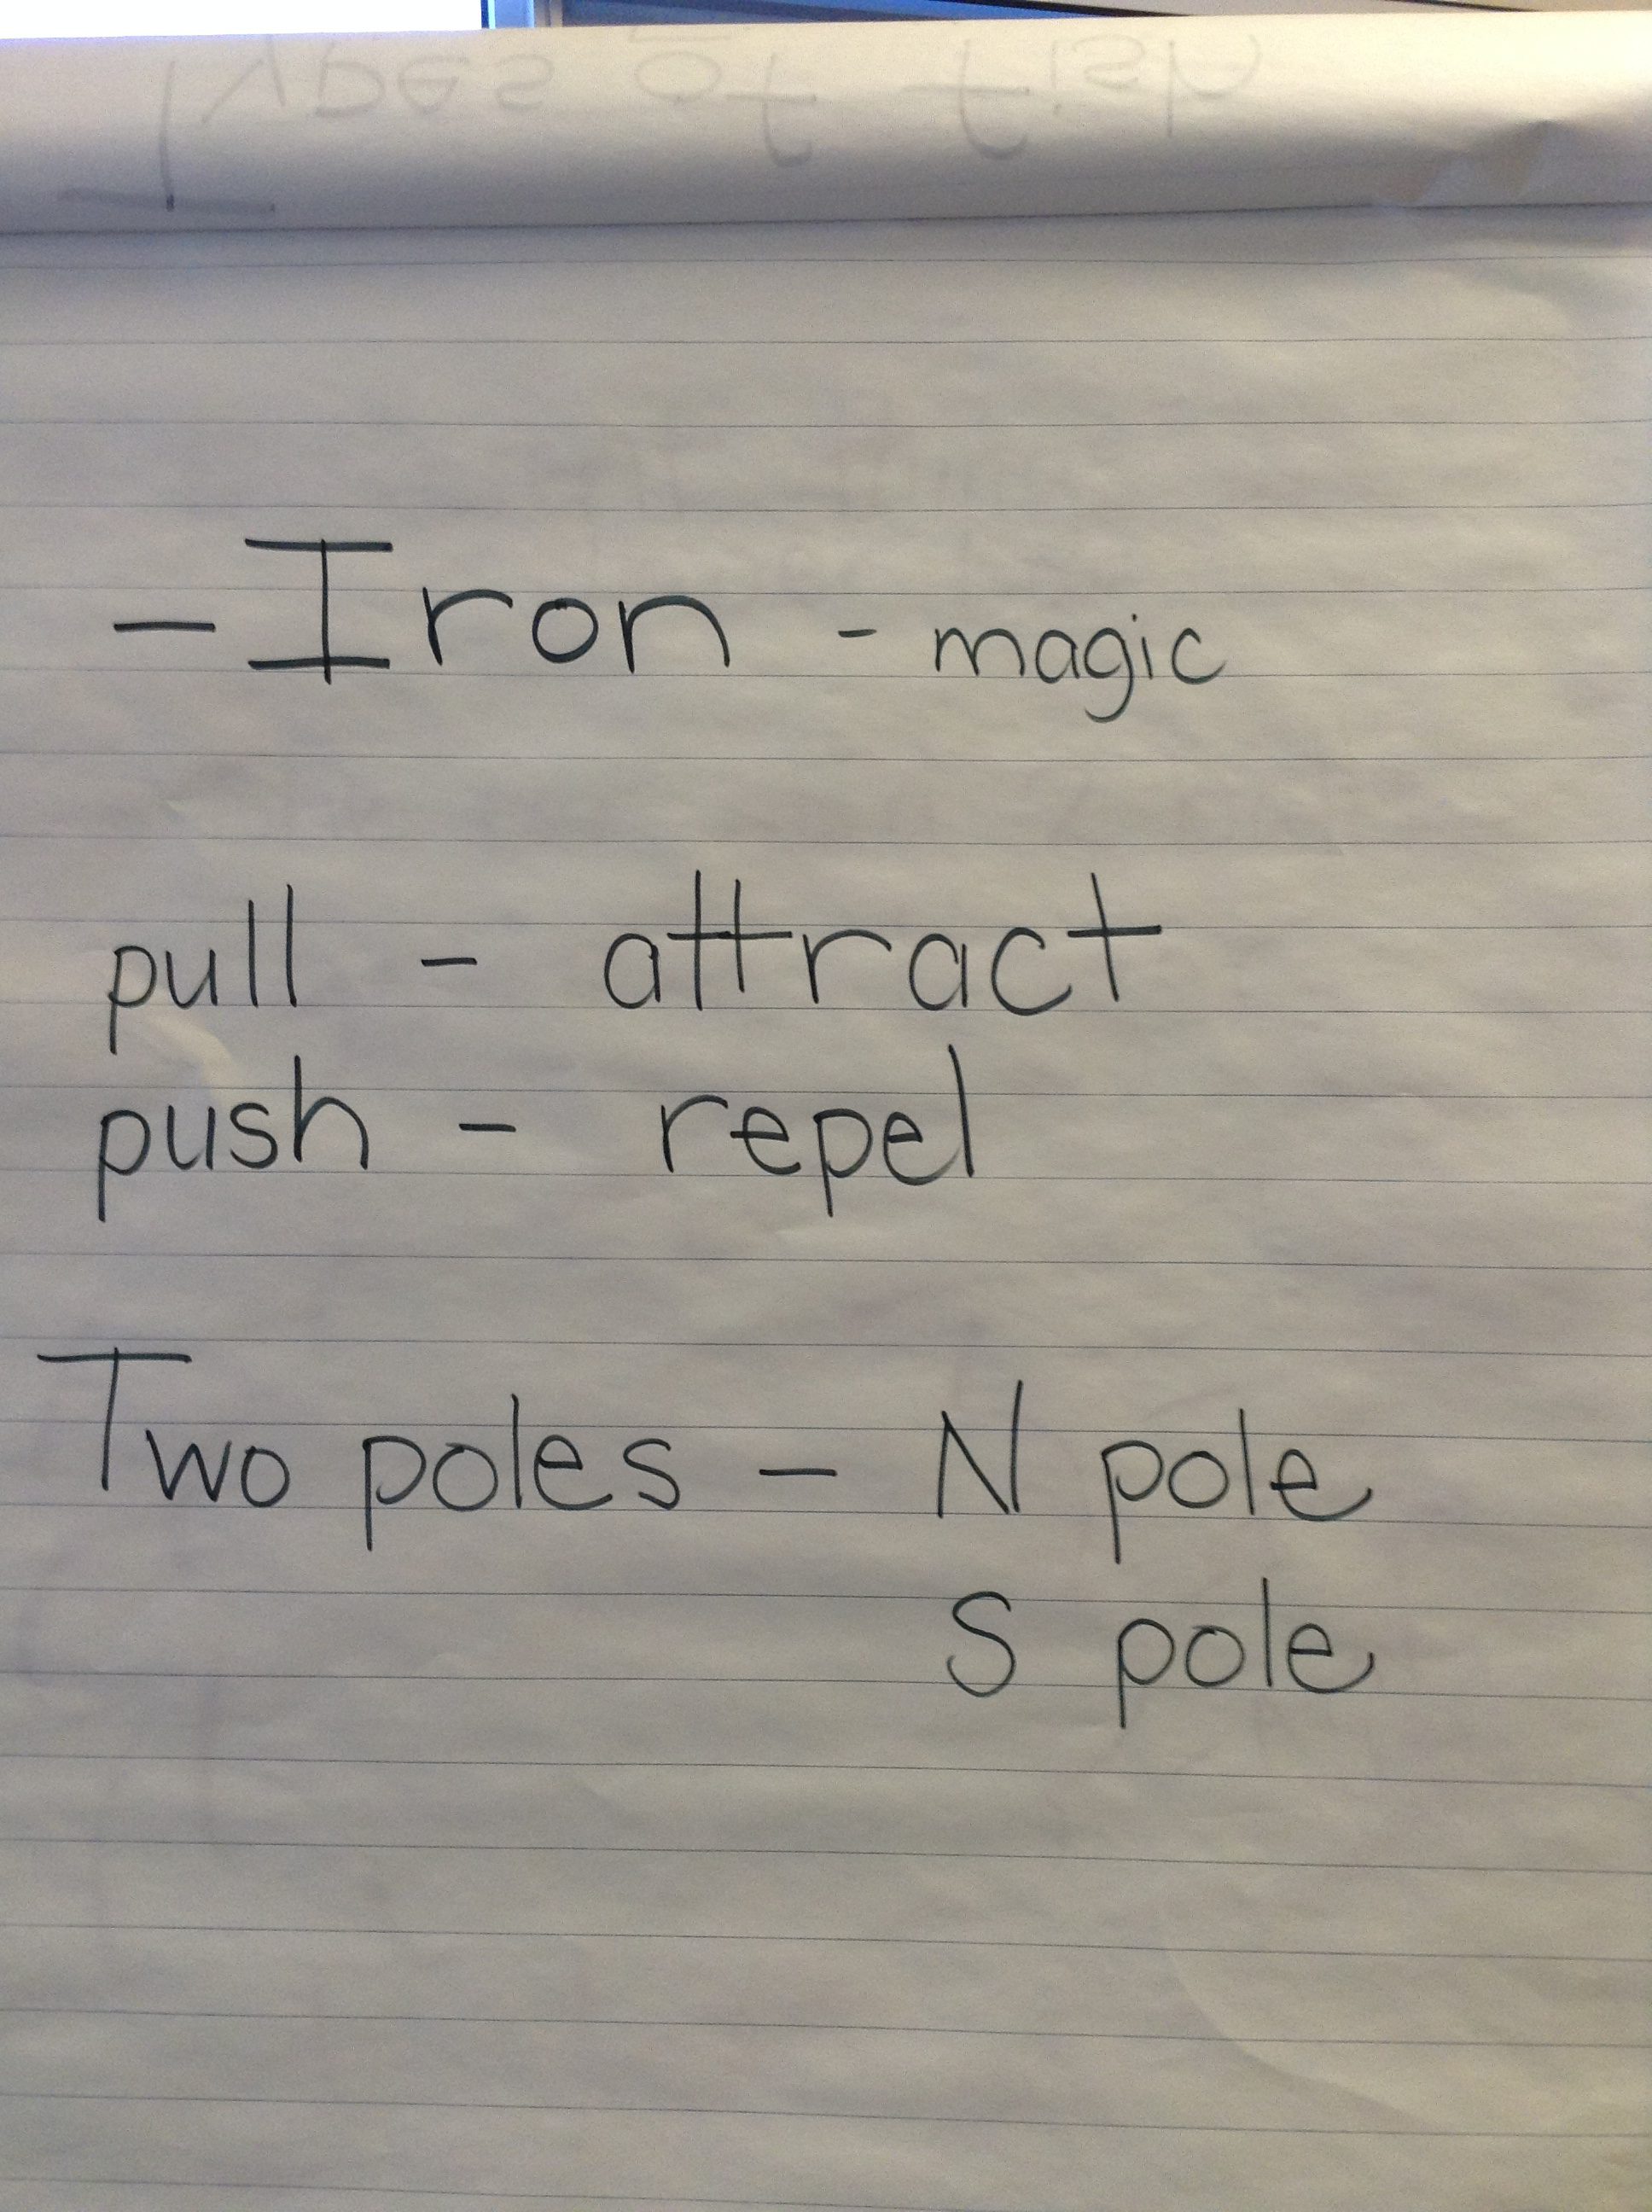 Types of fish
- Iron - magic
pull - attract
push - repel
Two poles - N pole
S pole